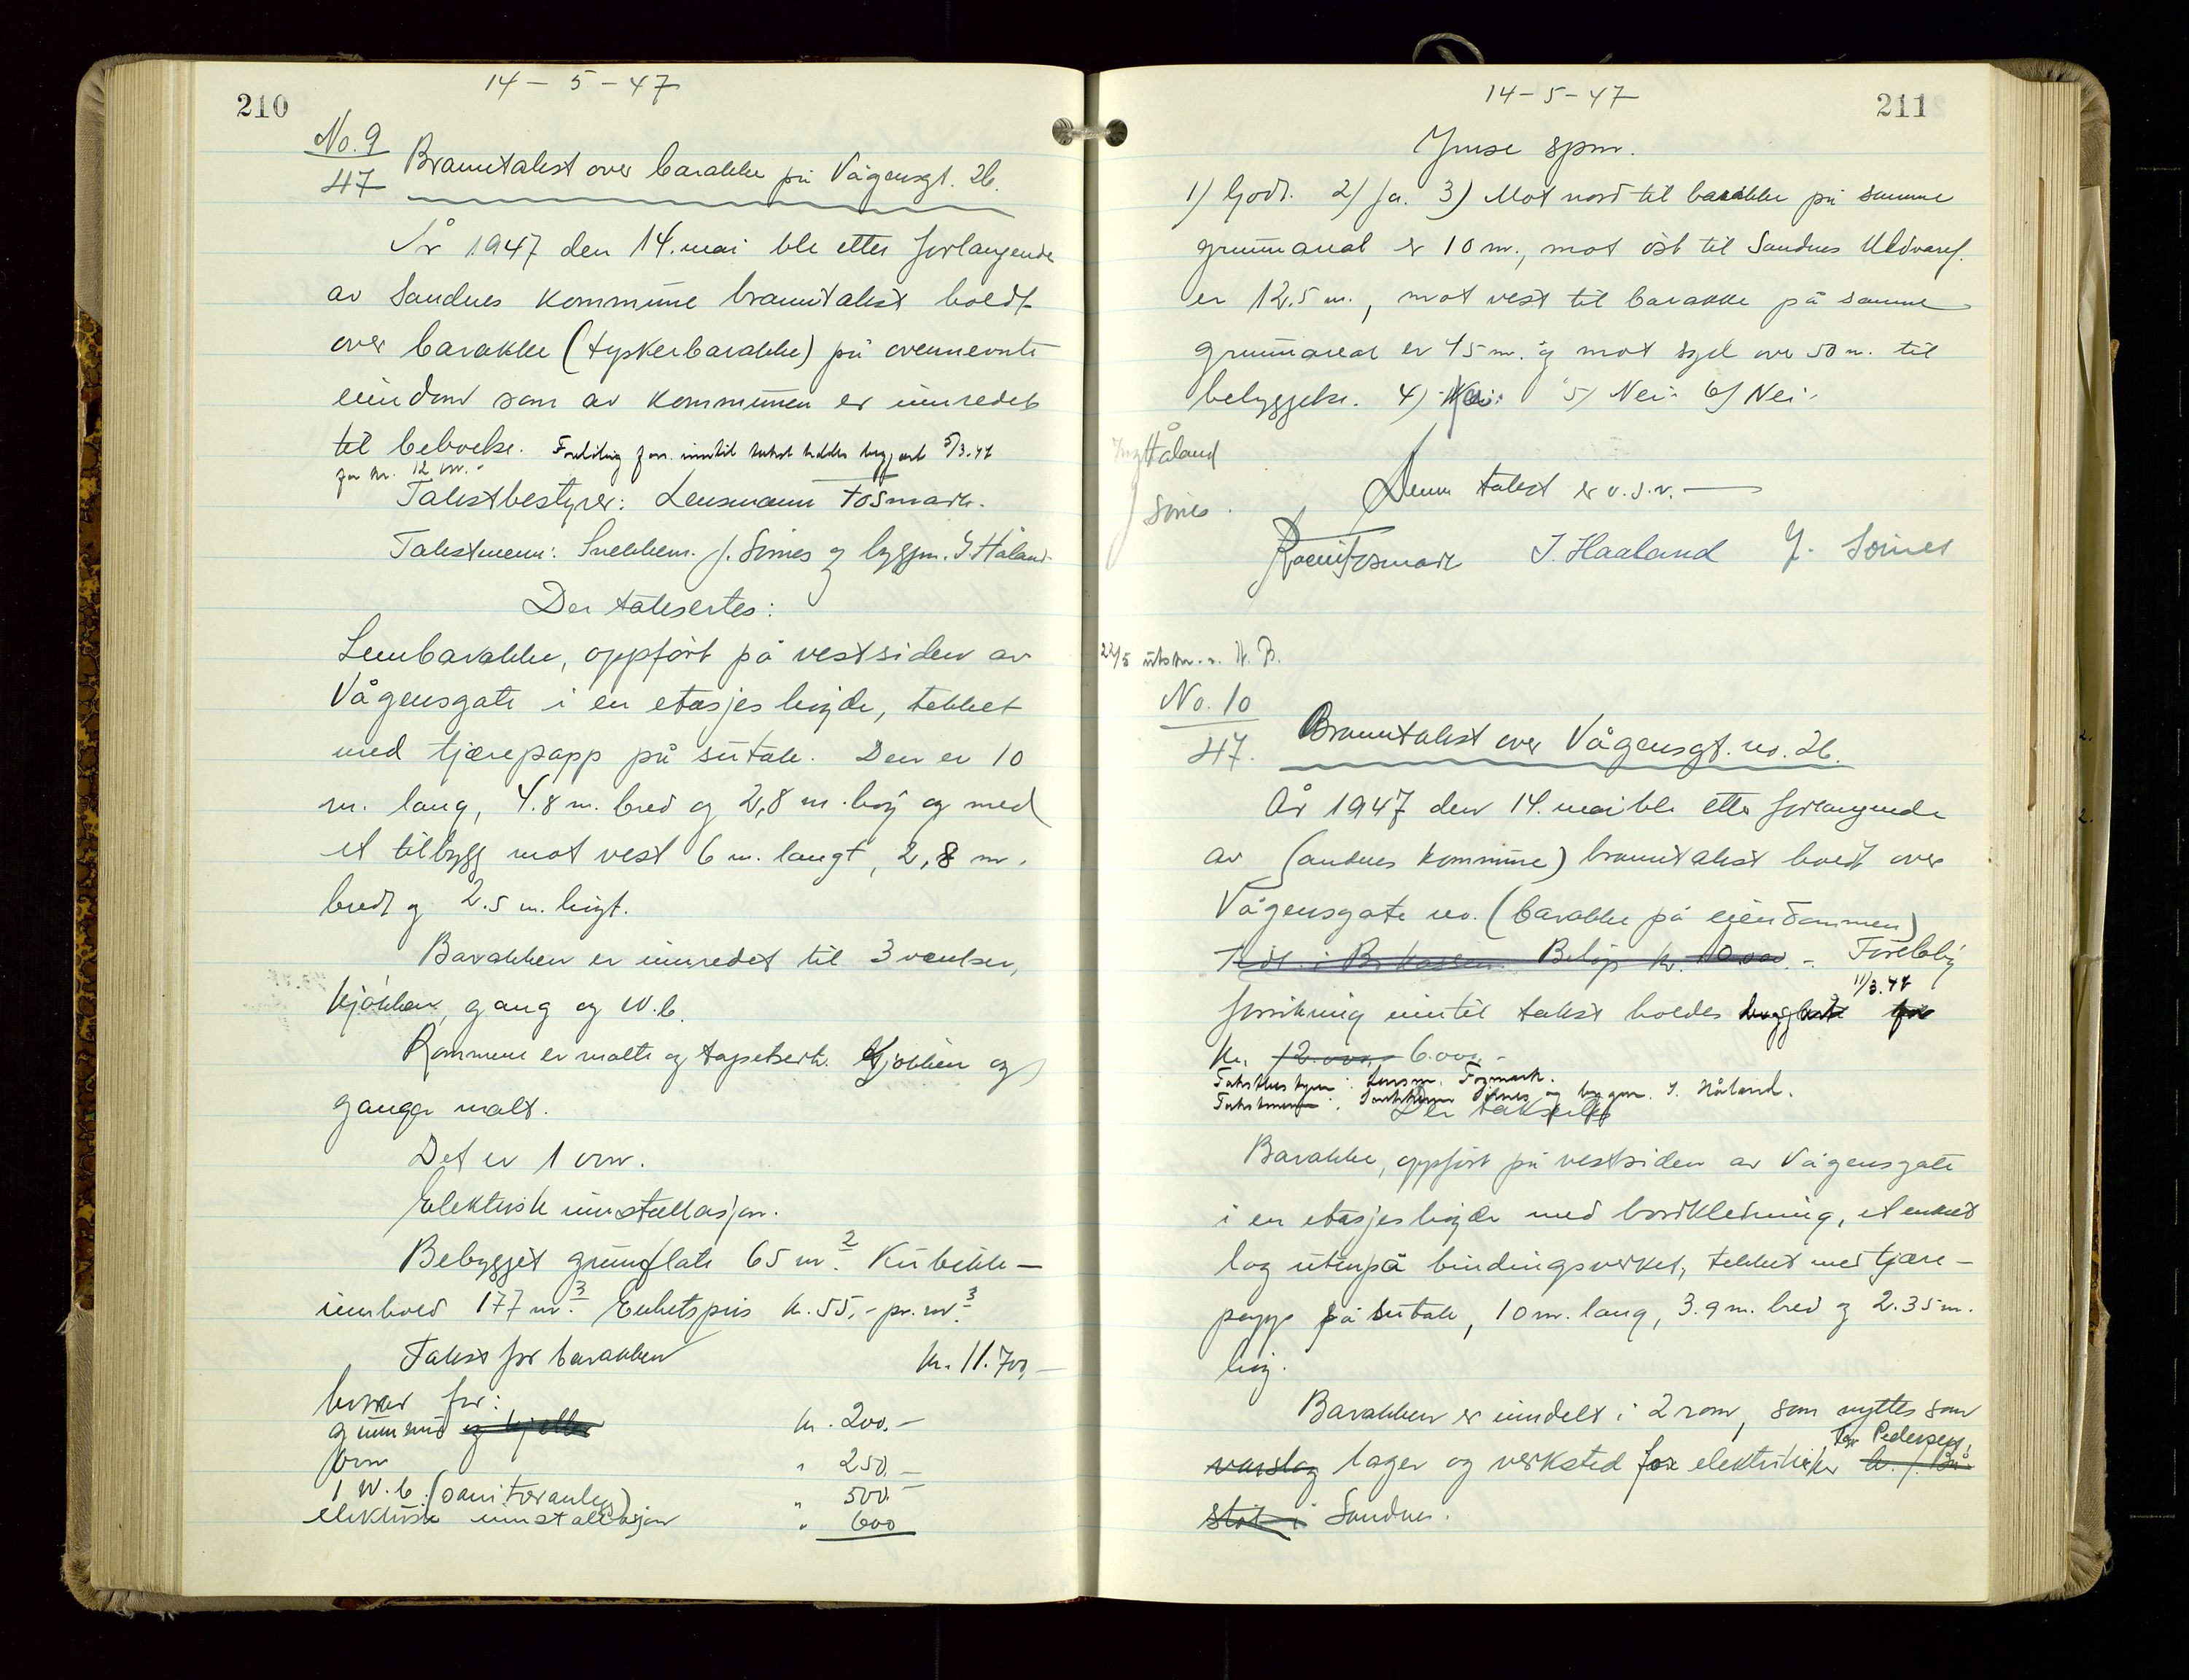 210
14 - 5 - 47
No. 9
47
Branntakst over barakke på Vågensgt. 26.
År 1947 den 14. mai ble etter forlangende
av Sandnes kommune branntakst holdt
over barakke (tyskerbarakke) på ovennevnte
eiendom som av kommunen er innredet
til beboelse. Foreløbig fors. inntil takst holdes begjært 5/3.47
for kr. 12 000.-
Takstbestyrer: Lensmann Tosmark.
Takstmenn: Snekkerm. J. Sirnes og byggm. I. Håland.
Der taksertes:
Lembarakke, oppført på vestsiden av
Vågensgate i en etasjes høyde, tekket
med tjærepapp på sutak. Den er 10
m. lang, 4.8 m. bred og 2,8 m. høy og med
et tilbygg mot vest 6 m. langt, 2,8 m.
bredt og 2.5 m. høyt.
Barakken er innredet til 3 værelser,
kjøkken, gang og W.C.
Rommene er malte og tapetserte. Kjøkken og
ganger malt.
Det er 1 ovn.
Elektrisk innstallasjon.
Bebygget grunnflate 65 m². Kubikk-
innhold 177 m³. Enhetspris kr. 55,- pr. m³.
Takst for barakken kr. 11.700,-
herav for:
grunnmur og kjeller kr. 200.-
ovn " 250.-
1 W.C. (sanitæranlegg) " 500.-
elektrisk innstallasjon " 600
14 - 5 - 47
211
Ymse spm.
1) Godt. 2) Ja. 3) Mot nord til barakke på samme
grunnareal er 10 m., mot øst til Sandnes Uldvaref.
er 12,5 m., mot vest til barakke på samme
grunnareal er 45 m. og mot syd over 50 m. til
bebyggelse. 4) 5) Nei. 6) Nei.
Håland
Sirnes.
Denne takst er v.s.v.
Tosmark I. Haaland J. Sirnes
22/5 utskr. s. N. B.
No. 10
47.
Branntakst over Vågensgt. no. 26.
År 1947 den 14. mai ble etter forlangende
av (Sandnes kommune) branntakst holdt over
Vågensgate no. (barakke på eiendommen)
Beløp kr. 10.000.- Foreløbig
forsikring inntil takst holdes begjært 11/3.47 for
kr. 12.000,- 6.000.-
Takstbestyrer: Lensm. Tosmark.
Takstmenn: Snekkerm. Sirnes og byggm. I. Håland.
Der taksertes
Barakke, oppført på vestsiden av Vågensgate
i en etasjes høyde med bordkledning, et enkelt
lag utenpå bindingsverket, tekket med tjære-
papp på sutak, 10 m. lang, 3.9 m. bred og 2.35 m.
høy.
Barakken er inndelt i 2 rom, som nyttes som
lager og verksted for elektriker Tor Pedersen,
i Sandnes.